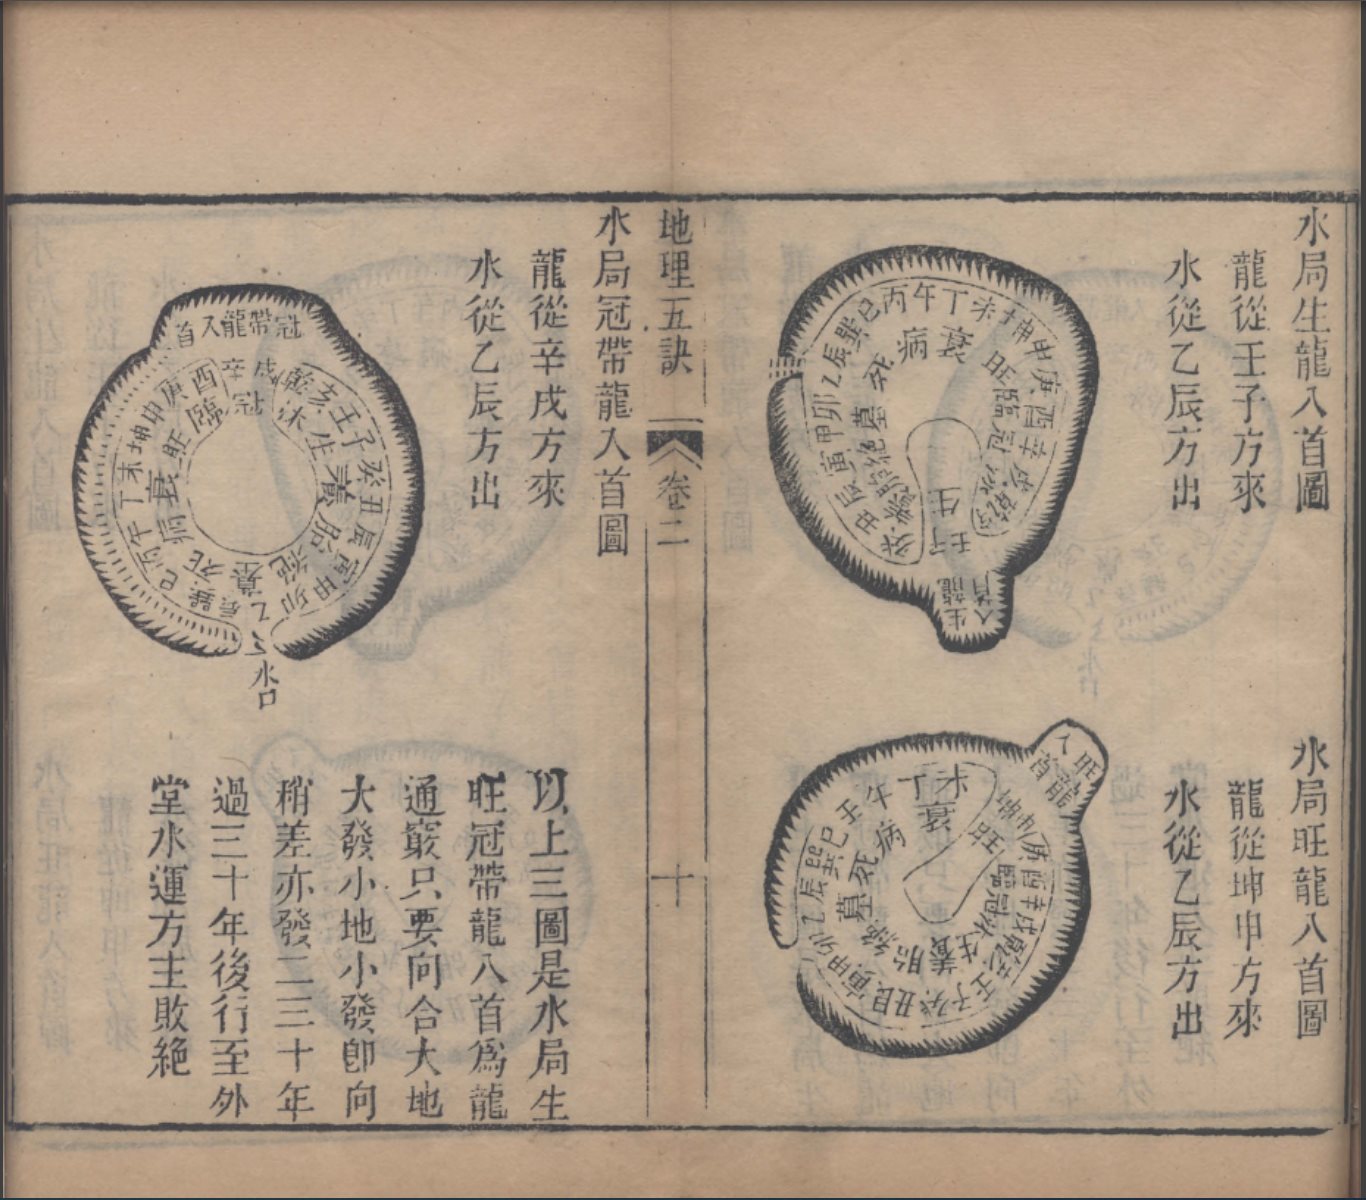 水局生龍入首圖
龍從壬子方來
水從乙辰方出
水局旺龍入首圖
龍從坤申方來
水從乙辰方出
地理五訣
卷二
十
水局冠帶龍入首圖
龍從辛戌方來
水從乙辰方出
以上三圖是水局生
旺冠帶龍入首爲龍
通竅只要向合大地
大發小地小發卽向
稍差亦發二三十年
過三十年後行至外
堂水運方主敗絶
巳丙午丁未坤申庚酉辛戌乾
巽辰乙卯甲寅
病衰
死墓絶胎養
旺臨冠沐
生
壬子
生龍入首
旺龍入首
未丁
衰
坤申
旺
庚酉辛戌乾
臨冠沐生養胎絶
午
病死墓
巳巽辰乙卯甲寅
丑癸子壬
冠帶龍入首
戌辛
冠
乾亥壬子癸丑
沐生養胎絶
寅甲卯乙
墓
辰巽巳丙午丁未坤申庚酉
死病衰旺臨
水口